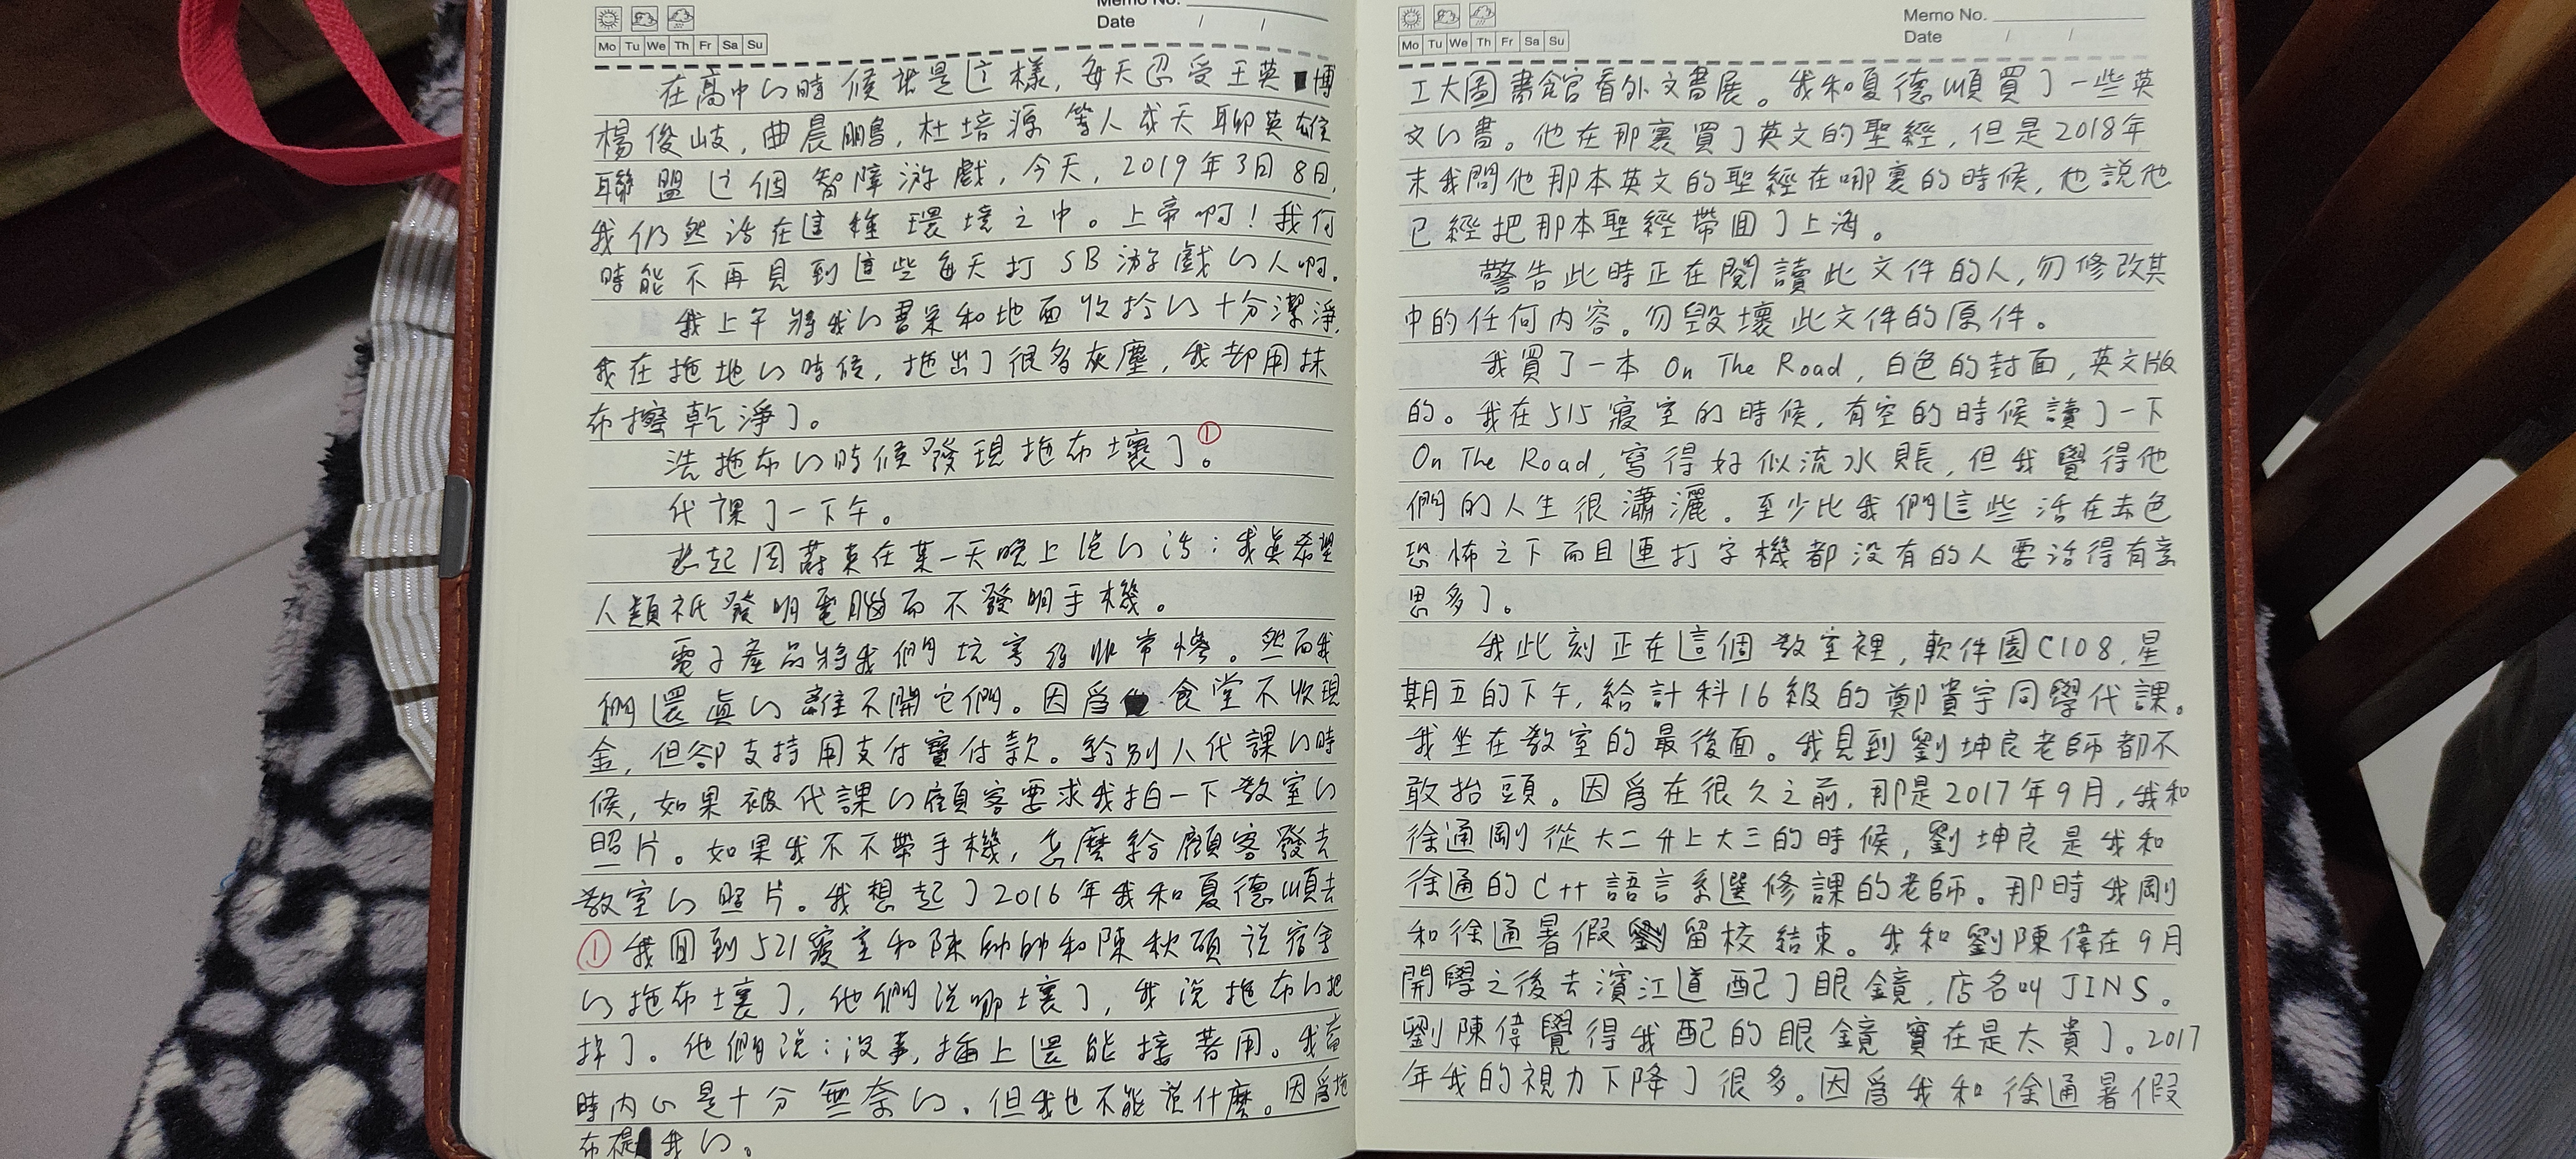 Memo No.
Date / /
Mo Tu We Th Fr Sa Su
在高中的時候就是這樣，每天忍受王英博
楊俊岐，曲晨鵬，杜培源等人成天聊英雄
聯盟這個智障游戲，今天，2019年3月8日，
我仍然活在這種環境之中。上帝啊！我何
時能不再見到這些每天打SB游戲的人啊。
我上午將我的書桌和地面收拾的十分潔淨，
我在拖地的時候，拖出了很多灰塵，我却用抹
布擦乾淨了。
洗拖布的時候發現拖布壞了①。
代課了一下午。
想起周蔚東在某一天晚上说的话：我真希望
人類祇發明電腦而不發明手機。
電子產品將我們坑害得非常慘。然而我
們還真的離不開它們。因爲食堂不收現
金，但卻支持用支付寶付款。給別人代課的時
候，如果被代課的顧客要求我拍一下教室的
照片。如果我不不帶手機，怎麼給顧客發去
教室的照片。我想起了2016年我和夏德順去
①我回到521寢室和陳帥帥和陳秋碩說宿舍
的拖布壞了，他們说哪壞了，我说拖布的把
掉了。他們说：沒事，插上還能接著用。我當
時内心是十分無奈的。但我也不能说什麼。因爲拖
布是我的。
Memo No.
Date / /
Mo Tu We Th Fr Sa Su
工大圖書館看外文書展。我和夏德順買了一些英
文的書。他在那裏買了英文的聖經，但是2018年
末我問他那本英文的聖經在哪裏的時候，他說他
已經把那本聖經帶回了上海。
警告此時正在閱讀此文件的人，勿修改其
中的任何内容。勿毀壞此文件的原件。
我買了一本 On The Road，白色的封面，英文版
的。我在515寢室的時候，有空的時候讀了一下
On The Road，寫得好似流水賬，但我覺得他
們的人生很瀟灑。至少比我們這些活在赤色
恐怖之下而且連打字機都没有的人要活得有意
思多了。
我此刻正在這個教室裡，軟件園C108，星
期五的下午，給計科16級的鄭貴宇同學代課。
我坐在教室的最後面。我見到劉坤良老師都不
敢抬頭。因爲在很久之前，那是2017年9月，我和
徐通剛從大二升上大三的時候，劉坤良是我和
徐通的C++語言系選修課的老師。那時我剛
和徐通暑假留校結束。我和劉陳偉在9月
開學之後去濱江道配了眼鏡，店名叫JINS。
劉陳偉覺得我配的眼鏡實在是太貴了。2017
年我的視力下降了很多。因爲我和徐通暑假